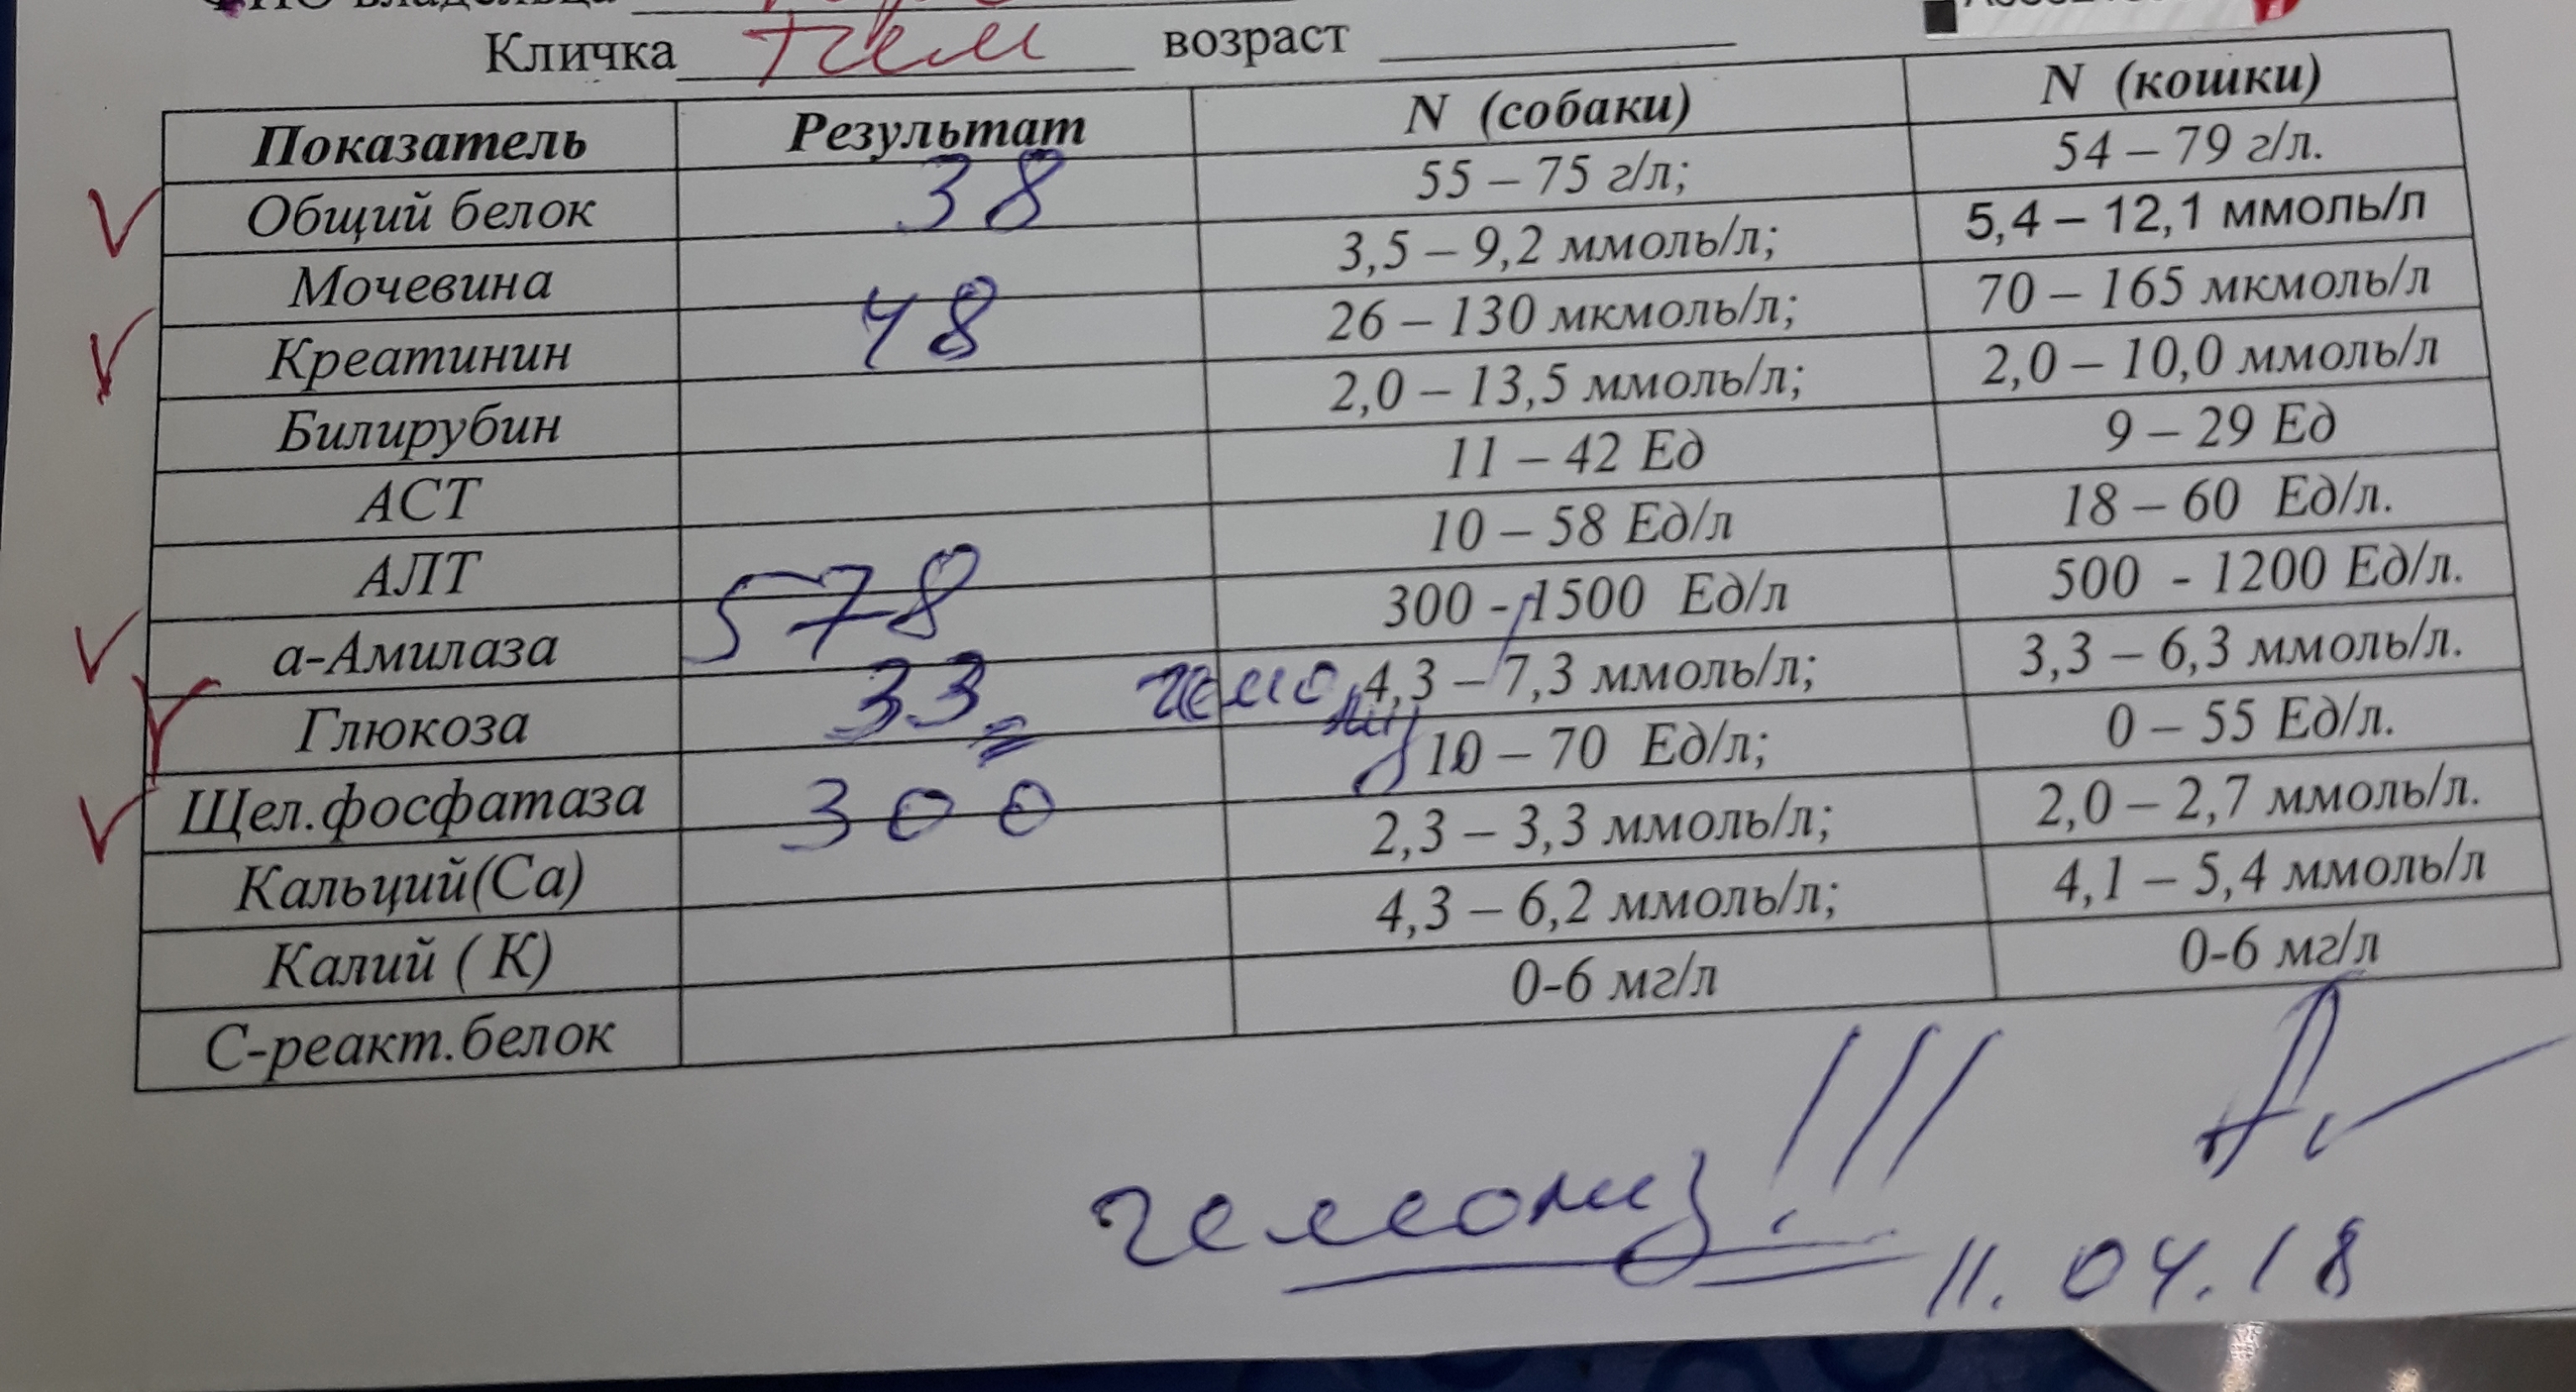 ФИО владельца
Кличка возраст
Показатель Результат N (собаки) N (кошки)
Общий белок 38 55 – 75 г/л; 54 – 79 г/л.
Мочевина 3,5 – 9,2 ммоль/л; 5,4 – 12,1 ммоль/л
Креатинин 48 26 – 130 мкмоль/л; 70 – 165 мкмоль/л
Билирубин 2,0 – 13,5 ммоль/л; 2,0 – 10,0 ммоль/л
АСТ 11 – 42 Ед 9 – 29 Ед
АЛТ 10 – 58 Ед/л 18 – 60 Ед/л.
а-Амилаза 578 300 - 1500 Ед/л 500 - 1200 Ед/л.
Глюкоза 33 гемолиз 4,3 – 7,3 ммоль/л; 3,3 – 6,3 ммоль/л.
Щел.фосфатаза 300 10 – 70 Ед/л; 0 – 55 Ед/л.
Кальций(Са) 2,3 – 3,3 ммоль/л; 2,0 – 2,7 ммоль/л.
Калий ( К) 4,3 – 6,2 ммоль/л; 4,1 – 5,4 ммоль/л
С-реакт.белок 0-6 мг/л 0-6 мг/л
гемолиз!!!
11.04.18